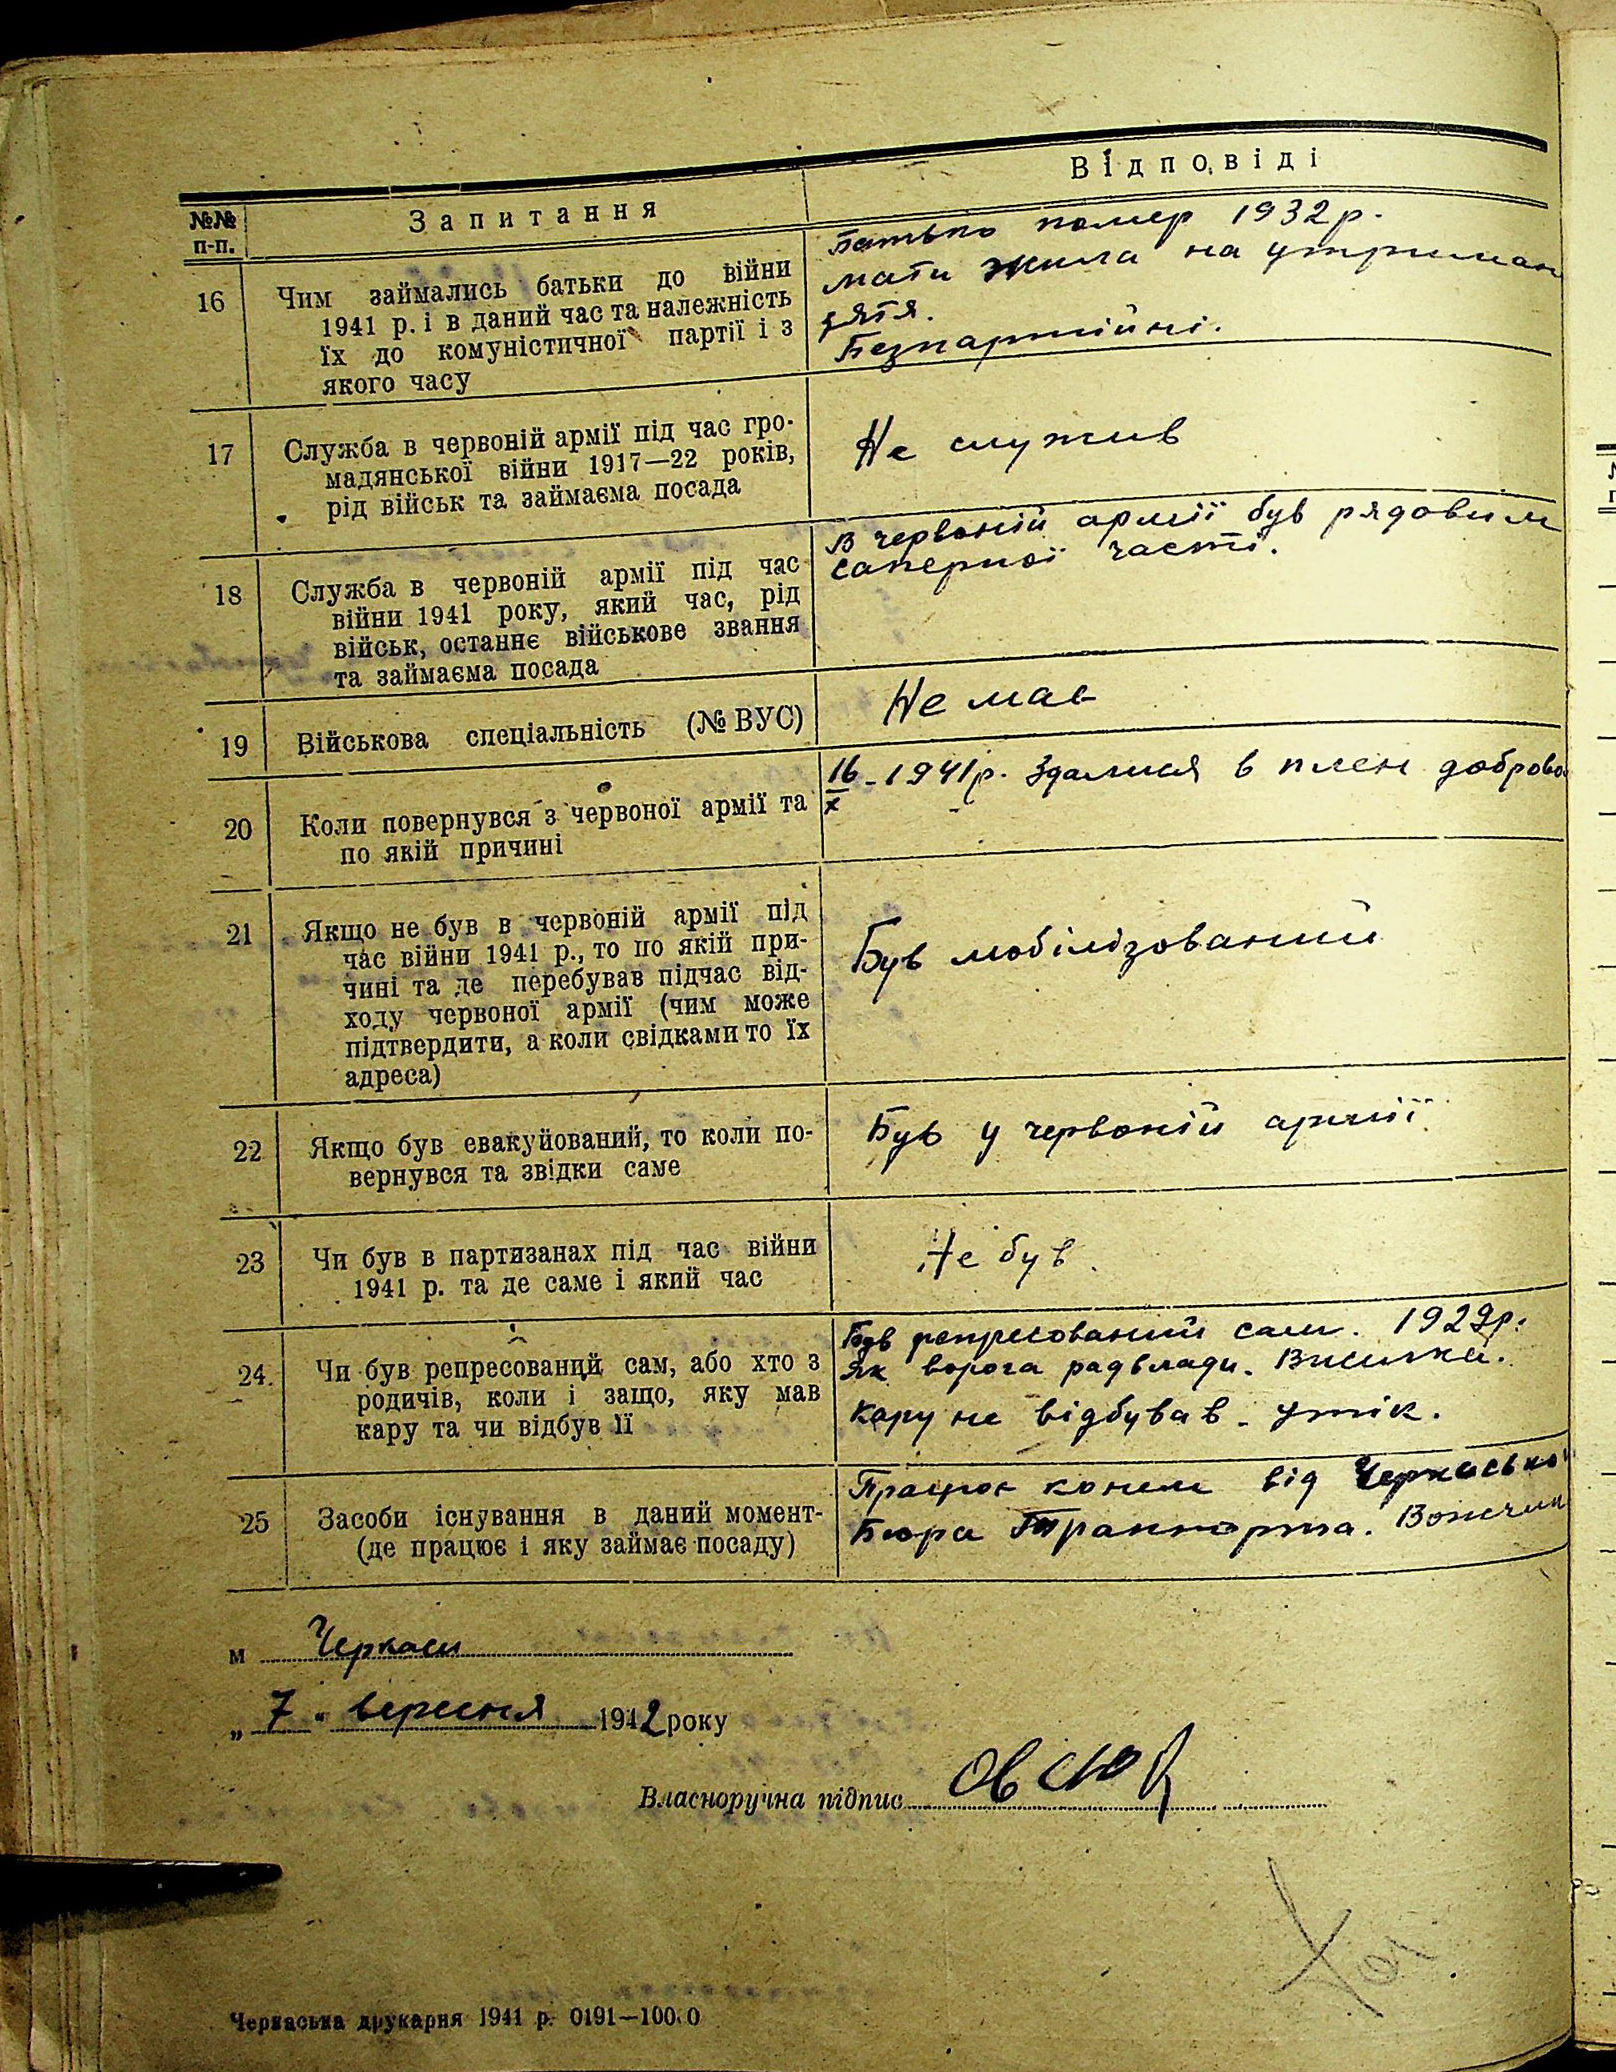 №№ п-п.
Запитання
Відповіді
16
Чим займались батьки до війни
1941 р. і в даний час та належність
їх до комуністичної партії і з
якого часу
Батько помер 1932 р.
мати жила на утриман
дятя.
Безпартійні.
17
Служба в червоній армії під час гро-
мадянської війни 1917—22 років,
рід військ та займаєма посада
Не служив
18
Служба в червоній армії під час
війни 1941 року, який час, рід
військ, останнє військове звання
та займаєма посада
В червоній армії був рядовим
саперної часті.
19
Військова спеціальність (№ ВУС)
Не мав
20
Коли повернувся з червоної армії та
по якій причині
16/X - 1941 р. Здалися в плен доброво
21
Якщо не був в червоній армії під
час війни 1941 р., то по якій при-
чині та де перебував підчас від-
ходу червоної армії (чим може
підтвердити, а коли свідками то їх
адреса)
Був мобілізований
22
Якщо був евакуйований, то коли по-
вернувся та звідки саме
Був у червоній армії
23
Чи був в партизанах під час війни
1941 р. та де саме і який час
Не був
24.
Чи був репресований сам, або хто з
родичів, коли і защо, яку мав
кару та чи відбув її
Був репресований сам. 1929 р.
як ворога радвлади. Висилка.
Кару не відбував - утік.
25
Засоби існування в даний момент-
(де працює і яку займає посаду)
Працюю конем від Черкасько
Бюра Транспорта.
м Черкаси
„ 7 " вересня 1942 року
Власноручна підпис Овсюк
Черкаська друкарня 1941 р. 0191—100.0